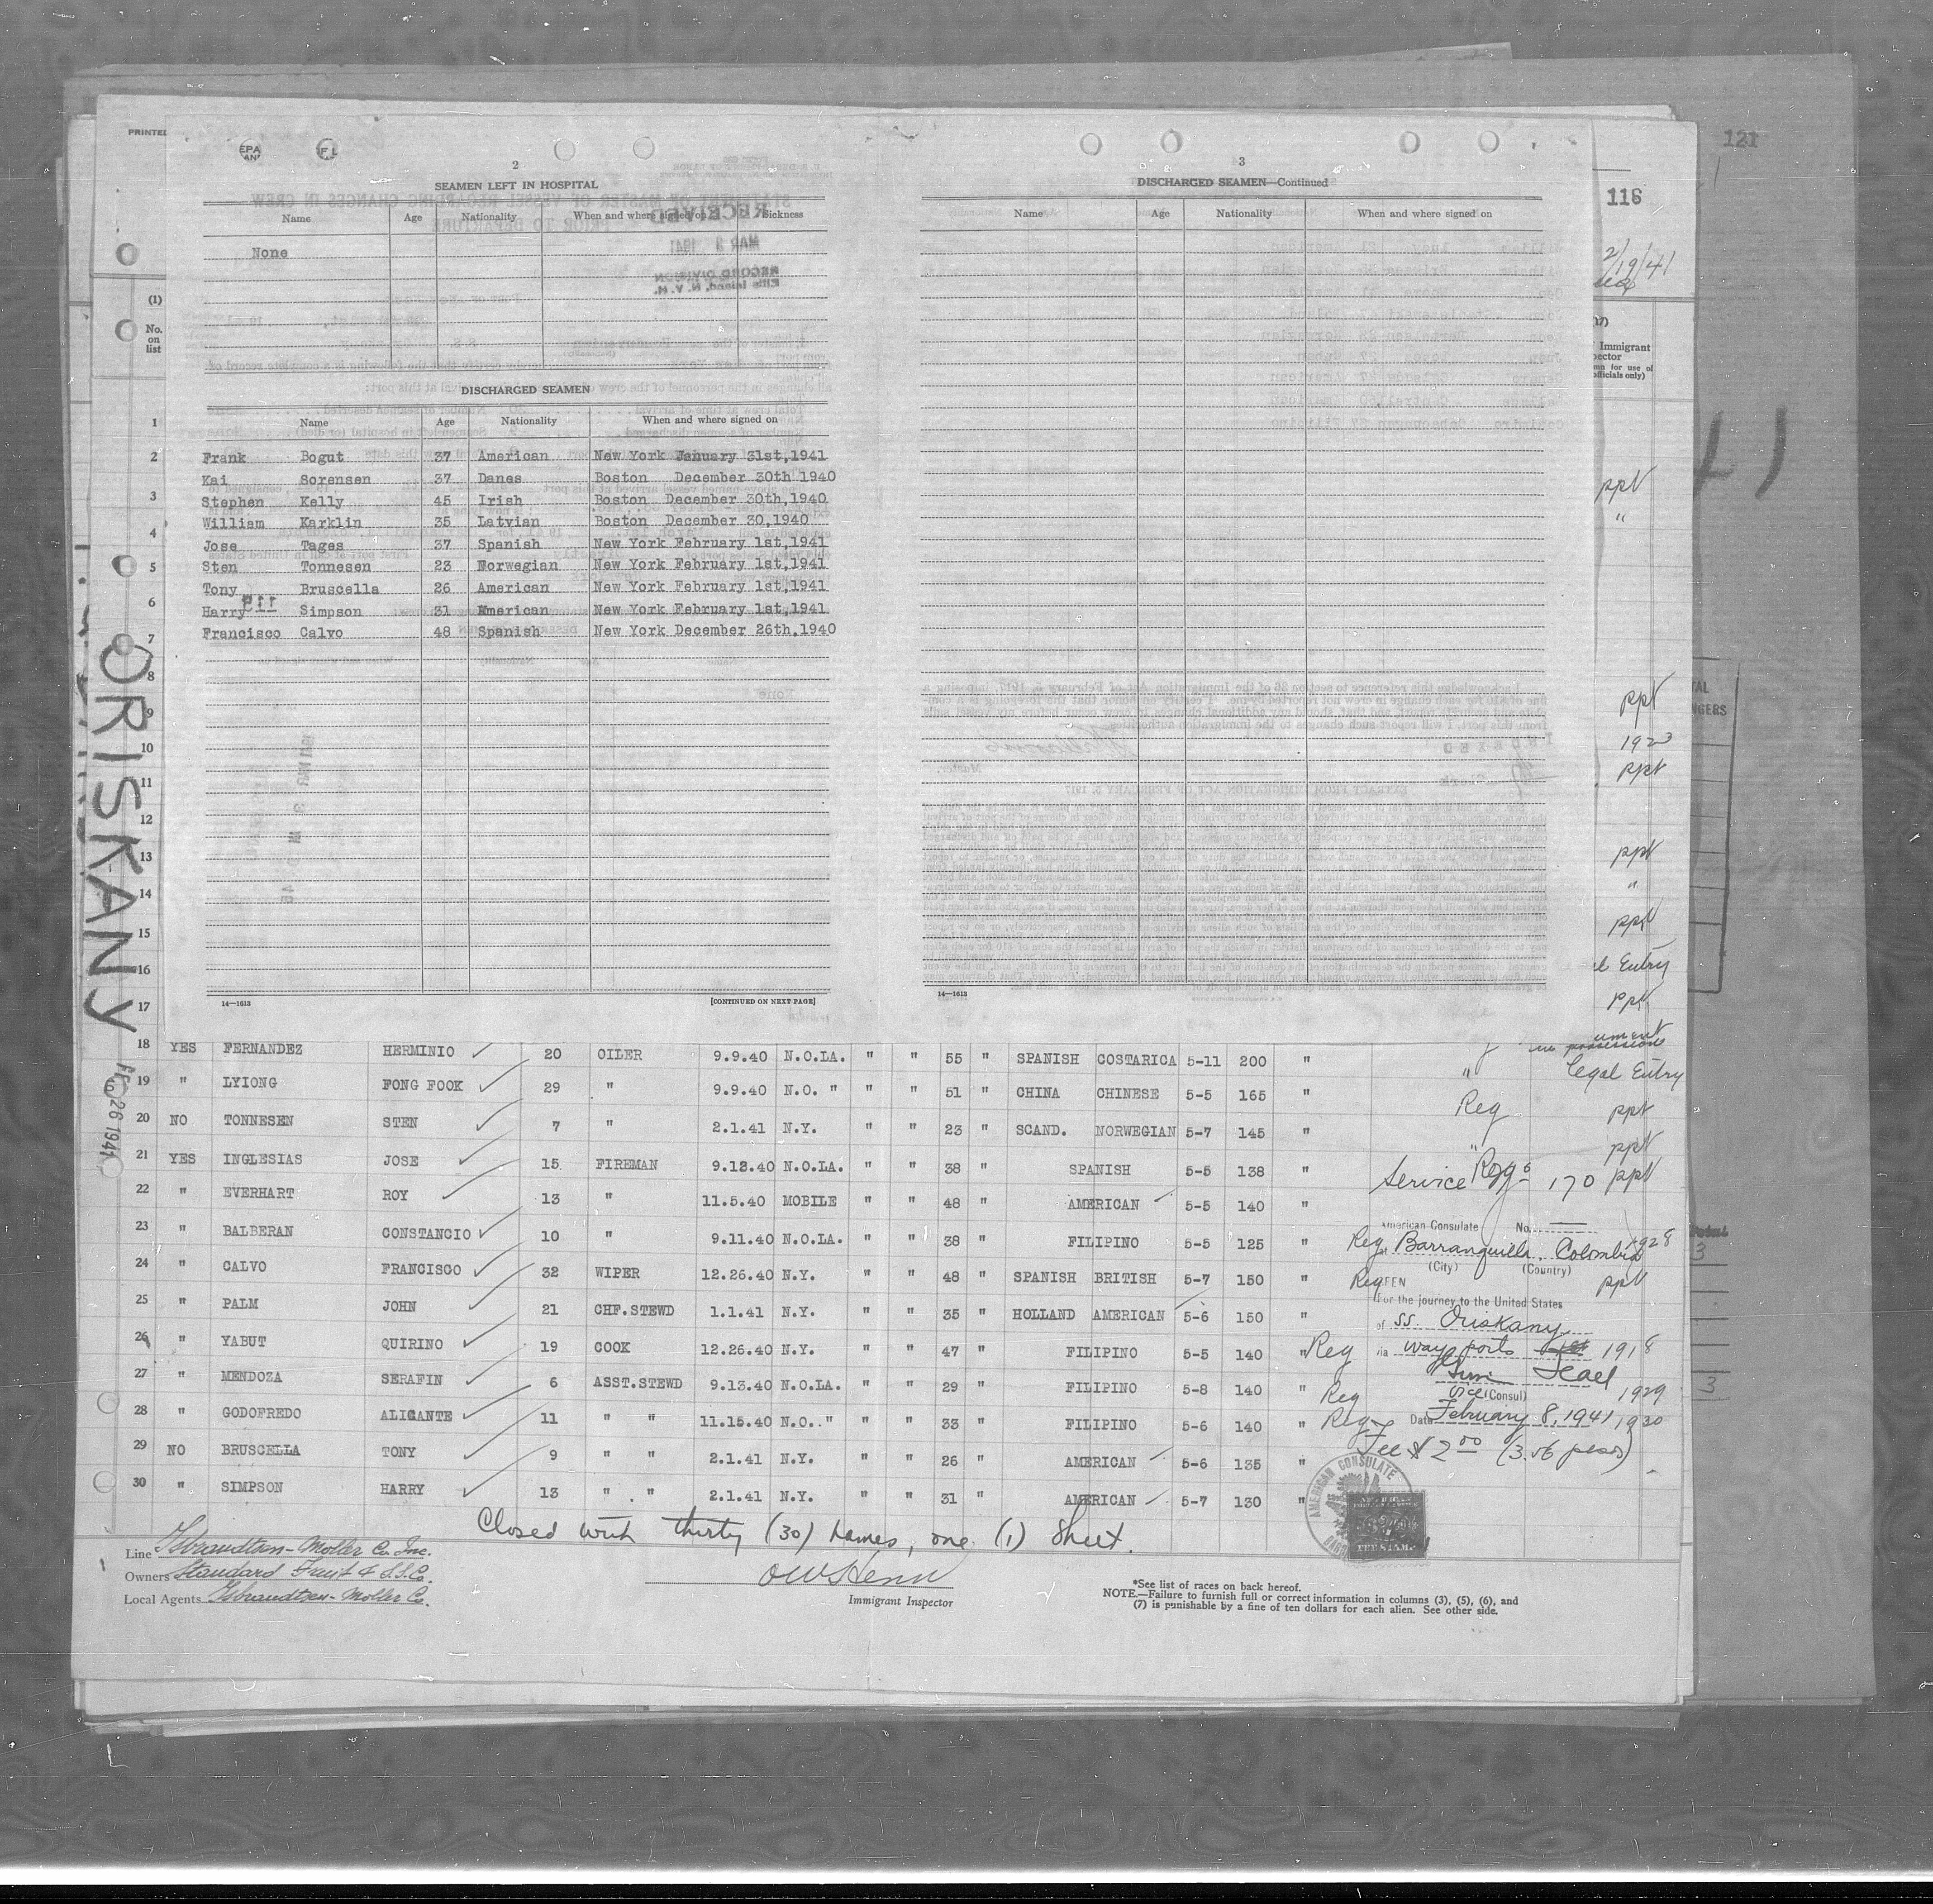 PRINTED
121
116
2/19/41
2
SEAMEN LEFT IN HOSPITAL
Name Age Nationality When and where signed on Sickness
None
DISCHARGED SEAMEN
Name Age Nationality When and where signed on
Frank Bogut 37 American New York January 31st,1941
Kai Sorensen 37 Danes Boston December 30th 1940
Stephen Kelly 45 Irish Boston December 30th,1940
William Karklin 35 Latvian Boston December 30,1940
Jose Tages 37 Spanish New York February 1st,1941
Sten Tonnesen 23 Norwegian New York February 1st,1941
Tony Bruscella 26 American New York February 1st,1941
Harry Simpson 31 American New York February 1st,1941
Francisco Calvo 48 Spanish New York December 26th,1940
14—1613 [CONTINUED ON NEXT PAGE]
3
DISCHARGED SEAMEN—Continued
Name Age Nationality When and where signed on
14—1613
(1)
No. on list
1
2
3
4
5
6
7
8
9
10
11
12
13
14
15
16
17
ORISKANY
FEB 26 1941
(17)
Immigrant
ppt
"
ppt
1923
ppt
ppt
"
ppt
Entry
ppt
18 YES FERNANDEZ HERMINIO 20 OILER 9.9.40 N.O.LA. " " 55 " SPANISH COSTARICA 5-11 200 "
19 " LYIONG FONG FOOK 29 " 9.9.40 N.O. " " " 51 " CHINA CHINESE 5-5 165 " " Legal Entry
20 NO TONNESEN STEN 7 " 2.1.41 N.Y. " " 23 " SCAND. NORWEGIAN 5-7 145 " Reg ppt
21 YES INGLESIAS JOSE 15 FIREMAN 9.12.40 N.O.LA. " " 38 " SPANISH 5-5 138 " " ppt
22 " EVERHART ROY 13 " 11.5.40 MOBILE " " 48 " AMERICAN 5-5 140 "
23 " BALBERAN CONSTANCIO 10 " 9.11.40 N.O.LA. " " 38 " FILIPINO 5-5 125 " Reg 1928
24 " CALVO FRANCISCO 32 WIPER 12.26.40 N.Y. " " 48 " SPANISH BRITISH 5-7 150 " Reg ppt
25 " PALM JOHN 21 CHF.STEWD 1.1.41 N.Y. " " 35 " HOLLAND AMERICAN 5-6 150 "
26 " YABUT QUIRINO 19 COOK 12.26.40 N.Y. " " 47 " FILIPINO 5-5 140 " Reg 1918
27 " MENDOZA SERAFIN 6 ASST.STEWD 9.13.40 N.O.LA. " " 29 " FILIPINO 5-8 140 " Reg 1929
28 " GODOFREDO ALICANTE 11 " " 11.15.40 N.O. " " " 33 " FILIPINO 5-6 140 " Reg 1930
29 NO BRUSCELLA TONY 9 " " 2.1.41 N.Y. " " 26 " AMERICAN 5-6 135 "
30 " SIMPSON HARRY 13 " " 2.1.41 N.Y. " " 31 " AMERICAN 5-7 130 "
Service No. 170
American Consulate
Barranquilla, Colombia
(City) (Country)
For the journey to the United States
of SS. Oriskany
via way ports
Vice (Consul)
Date February 8, 1941
Fee $2.00 (3.56 pesos)
AMERICAN CONSULATE
FEE STAMP
Closed with thirty (30) names, one (1) Sheet.
Line Isbrandtsen-Moller Co. Inc.
Owners Standard Fruit & S.S. Co.
Local Agents Isbrandtsen-Moller Co.
Immigrant Inspector
*See list of races on back hereof.
NOTE.—Failure to furnish full or correct information in columns (3), (5), (6), and
(7) is punishable by a fine of ten dollars for each alien. See other side.